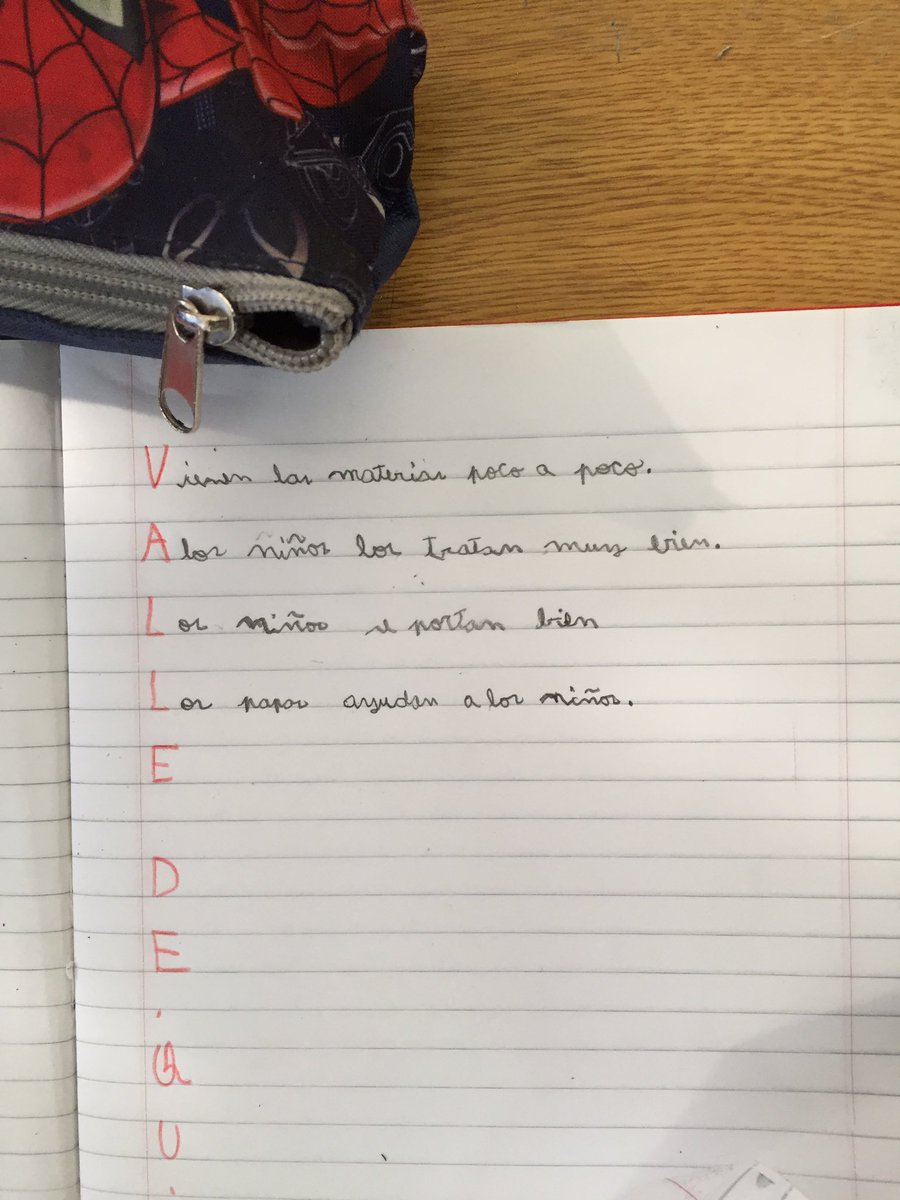 Vienen las materias poco a poco.
A los niños los tratan muy bien.
Los niños se portan bien
Los papas ayudan a los niños.
E
D
E
Q
U